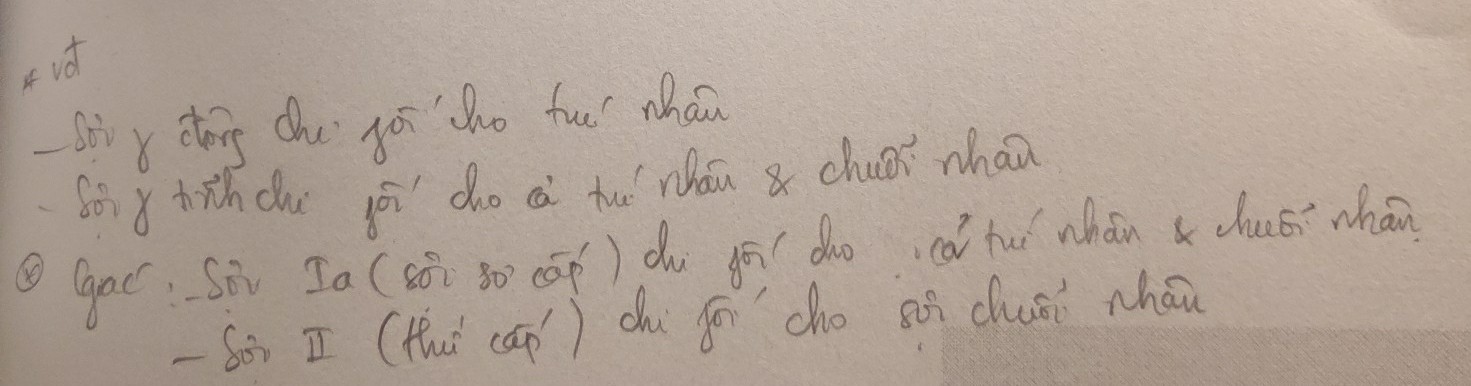 * vđ
- Sợi γ động chi phối cho túi nhân
- Sợi γ tĩnh chi phối cho cả túi nhân & chuỗi nhân
⊛ Giác: - Sợi Ia (sợi sơ cấp) chi phối cho cả túi nhân & chuỗi nhân
- Sợi II (thứ cấp) chi phối cho sợi chuỗi nhân